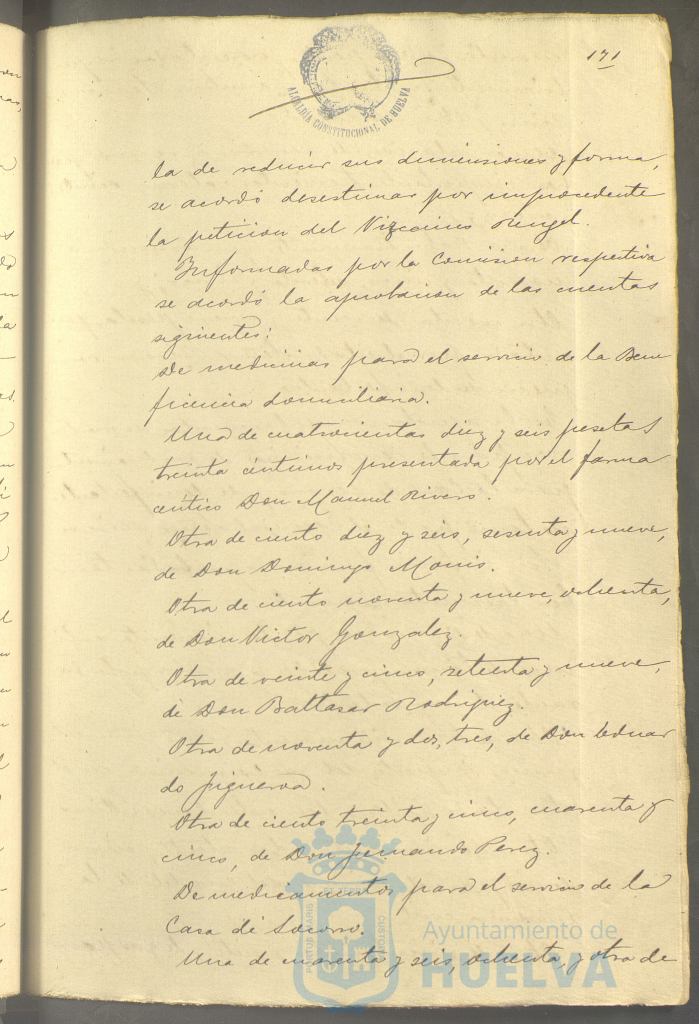 171
ALCALDÍA CONSTITUCIONAL DE HUELVA
la de reducir sus dimensiones y forma,
se acordó desestimar por improcedente
la petición del Vizcaino Rengel.
Informadas por la Comision respectiva
se acordó la aprobacion de las cuentas
siguientes:
De medicinas para el servicio de la Bene
ficencia domiciliaria.
Una de cuatrocientas diez y seis pesetas
treinta céntimos presentada por el farma
céutico Don Manuel Rivero.
Otra de ciento diez y seis, sesenta y nueve,
de Don Domingo Monis.
Otra de ciento noventa y nueve, ochenta,
de Don Victor Gonzalez.
Otra de veinte y cinco, setenta y nueve,
de Don Baltasar Rodriguez.
Otra de noventa y dos, tres, de Don Eduar
do Figueroa.
Otra de ciento treinta y cinco, cuarenta y
cinco, de Don Fernando Perez.
De medicamentos para el servicio de la
Casa de Socorro.
Una de cuarenta y seis, ochenta, y otra de
Ayuntamiento de
HUELVA